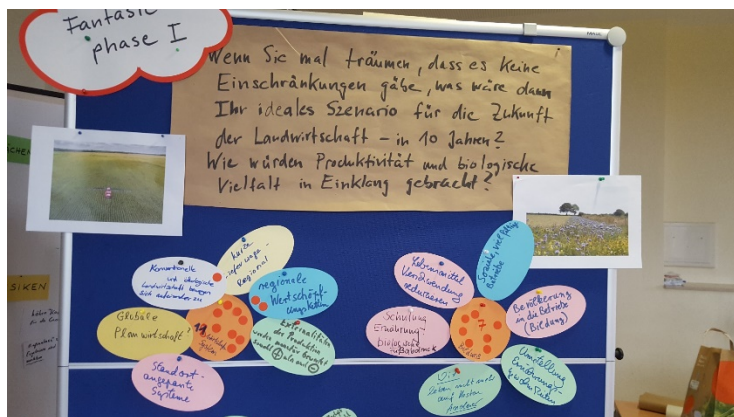 Fantasie
phase I
Wenn Sie mal träumen, dass es keine
Einschränkungen gäbe, was wäre dann
Ihr ideales Szenario für die Zukunft
der Landwirtschaft – in 10 Jahren?
Wie würden Produktivität und biologische
Vielfalt in Einklang gebracht?
SIKEN
Konventionelle
und ökologische
Landwirtschaft bewegen
sich aufeinander zu
kurze
regional
regionale
Wertschöpf-
ungsketten
Globale
Planwirtschaft
11
Externalitäten
der Produktion
werden
Standort-
angepasste
Systeme
Lebensmittel
Verschwendung
reduzieren
Soziale, vielfältige
Betriebe
Schulung
Ernährung
biologischer
Fußabdruck
17
Bevölkerung
in die Betriebe
(Bildung)
Umstellung
Ernährungs-
gewohnheiten
Wir
leben nicht mehr
auf Kosten
Anderer